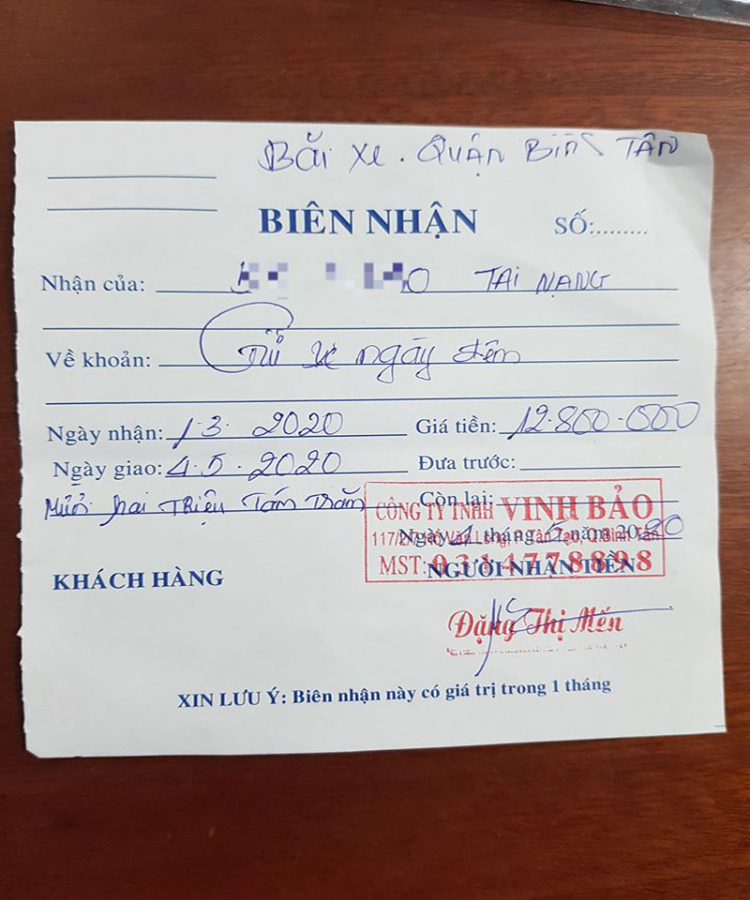 Bãi xe. QUẬN BÌNH TÂN
BIÊN NHẬN SỐ:.........
Nhận của: TAI NẠNG
Về khoản: Gửi xe ngày đêm
Ngày nhận: 1.3. 2020 Giá tiền: 12.800.000
Ngày giao: 4.5. 2020 Đưa trước:
Mười hai Triệu Tám Trăm Còn lại:
CÔNG TY TNHH VINH BẢO
Ngày 4 tháng 5 năm 2020
Tân Tạo, Q.Bình Tân
MST:
NGƯỜI NHẬN TIỀN
KHÁCH HÀNG
Đặng Thị Mến
XIN LƯU Ý: Biên nhận này có giá trị trong 1 tháng